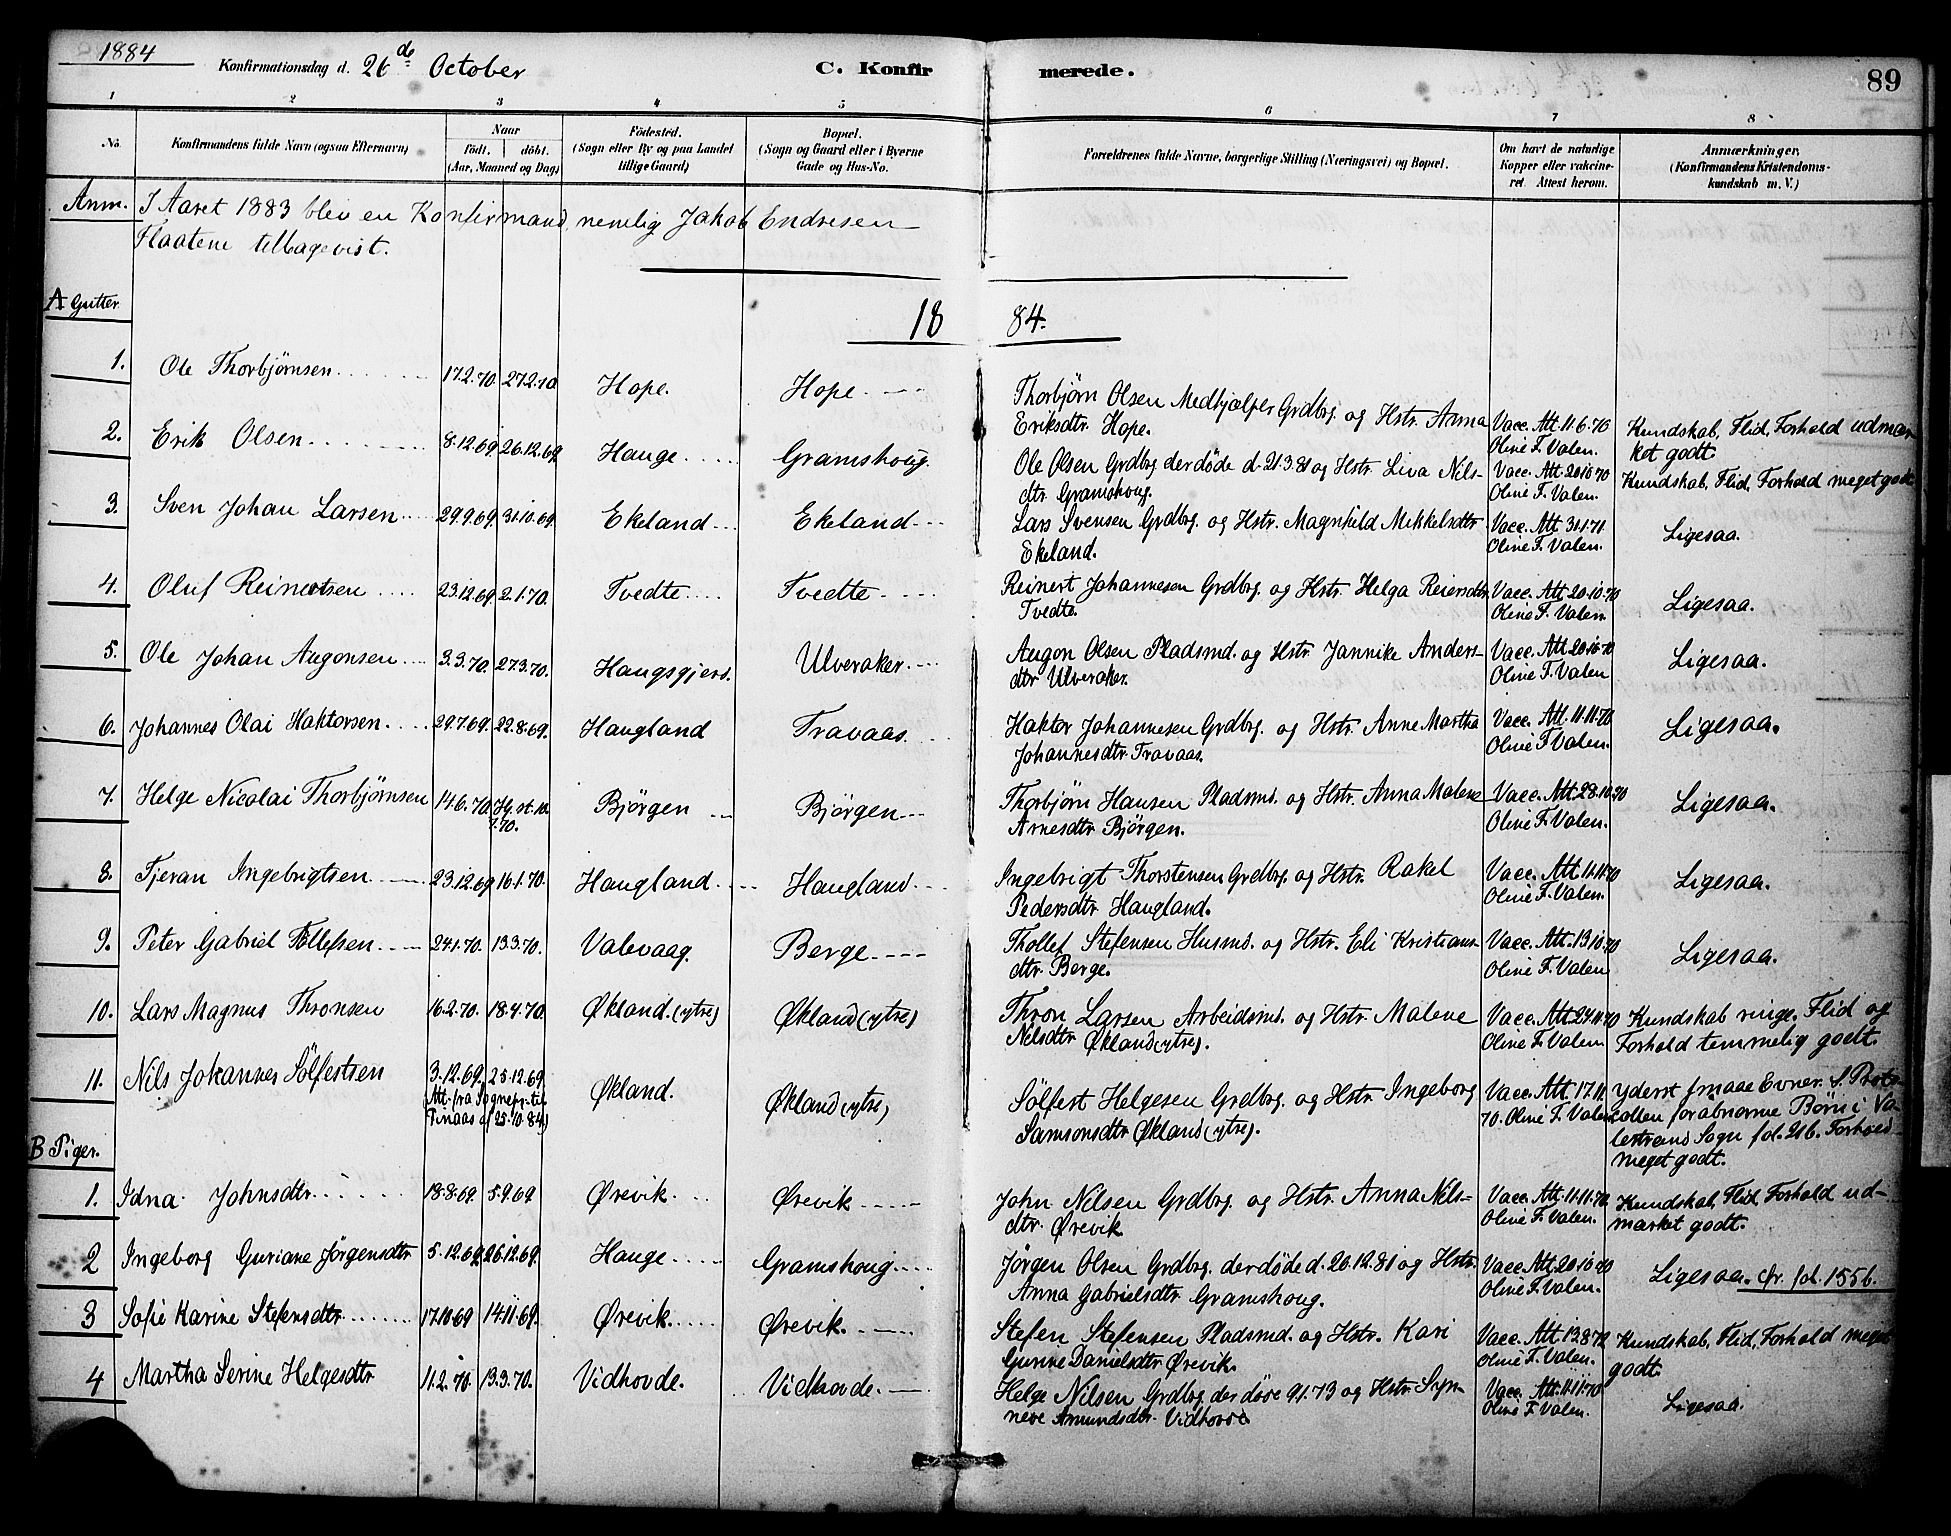 1884
Konfirmationsdag d. 26de October
C. Konfirmerede.
89
1 2 3 4 5 6 7 8
No. Konfirmandens fulde Navn (ogsaa Efternavn) Naar født. døbt. (Aar, Maaned og Dag) Fødested. (Sogn eller By og paa Landet tillige Gaard.) Bopæl. (Sogn og Gaard eller i Byerne Gade og Hus-No. Forældrenes fulde Navne, borgerlige Stilling (Næringsvei) og Bopæl. Om havt de naturlige Kopper eller vakcineret. Attest herom. Anmærkninger, (Konfirmandens Kristendomskundskab m. V.)
Anm. I Aaret 1883 blev en Konfirmand, nemlig Jakob Endresen
Flaatene tilbagevist.
A Gutter
18 84.
1. Ole Thorbjørnsen 17.2.70 27.2.70 Hope. Hope. Thorbjørn Olsen Medhjælper Grdbrg. og Hstr. Anna
Eriksdtr. Hope. Vacc. Att. 11.6.70 Oline F. Valen. Kundskab, Flid, Forhold udmærket godt.
2. Erik Olsen 8.12.69 26.12.69 Hauge Gramshoug. Ole Olsen Grdbrg. der døde d. 21.3.81 og Hstr. Liva Nils-
dtr. Gramshoug. Vacc. Att. 20.10.70 Oline F. Valen. Kundskab, Flid, Forhold meget godt
3. Sven Johan Larsen 29.9.69 31.10.69 Ekeland Ekeland Lars Svensen Grdbrg. og Hstr. Magnhild Mikkelsdtr
Ekeland. Vacc. Att. 31.1.71. Oline F. Valen. Ligesaa.
4. Oluf Reinertsen 23.12.69 2.1.70. Tvedte Tvedte Reinert Johannesen Grdbrg. og Hstr. Helga Reiersdtr.
Tvedte. Vacc. Att. 20.10.70 Oline F. Valen. Ligesaa.
5. Ole Johan Augonsen 3.3.70. 27.3.70. Haugsgjerd. Ulveraker Augon Olsen Pladsmd. og Hstr. Jannike Anders-
dtr Ulveraker. Vacc. Att. 20.10.70 Oline F. Valen Ligesaa.
6. Johannes Olai Haktorsen 29.7.69. 22.8.69. Haugland Travaas. Haktor Johannesen Grdbrg. og Hstr. Anne Martha
Johannesdtr Travaas. Vacc. Att. 11.11.70 Oline F. Valen. Ligesaa.
7. Helge Nicolai Thorbjørnsen 14.6.70. Hj. st. 10.7.70. Bjørgen Bjørgen Thorbjørn Hansen Pladsmd. og Hstr. Anna Malene
Arnesdtr Bjørgen. Vacc. Att. 28.10.70 Oline F. Valen. Ligesaa.
8. Tjeran Ingebrigtsen 23.12.69 16.1.70. Haugland Haugland Ingebrigt Thorstensen Grdbrg. og Hstr. Rakel
Pedersdtr Haugland. Vacc. Att. 11.11.70 Oline F. Valen. Ligesaa.
9. Peter Gabriel Tollefsen 24.1.70. 13.3.70. Valevaag. Berge Thollef Stefensen Husmd. og Hstr. Eli Kristians-
dtr. Berge. Vacc. Att. 13.10.70 Oline F. Valen Ligesaa.
10. Lars Magnus Thronsen 16.2.70. 18.4.70. Økland (ytre) Økland (ytre) Thron Larsen Arbeidsmd. og Hstr. Malene
Nilsdtr Økland (ytre). Vacc. Att. 24.11.70 Oline F. Valen. Kundskab ringe. Flid og
Forhold temmelig godt.
11. Nils Johannes Sølfestsen 3.12.69. 25.12.69. (Att. fra Sognepr. til Finaas af 25.10.84) Økland. Økland (ytre) Sølfest Helgesen Grdbrg. og Hstr. Ingeborg
Samsonsdtr Økland (ytre). Vacc. Att. 17.11.70. Oline F. Valen Yderst smaae Evner. S. Proto-
collen for abnorme Børn i Va-
lestrand Sogn fol. 21b. Forhold
meget godt.
B Piger.
1. Idna Johnsdtr. 18.8.69. 5.9.69 Ørevik Ørevik John Nilsen Grdbrg. og Hstr. Anna Nils-
dtr. Ørevik Vacc. Att. 11.11.70 Oline F. Valen. Kundskab, Flid, Forhold ud-
mærket godt.
2 Ingeborg Guriane Jørgensdtr 5.12.69. 26.12.69. Hauge Gramshoug Jørgen Olsen Grdbrg. der døde d. 20.12.81 og Hstr.
Anna Gabrielsdtr Gramshoug. Vacc. Att. 20.10.70 Oline F. Valen. Ligesaa. Cfr. fol. 155b.
3 Sofie Karine Stefensdtr 17.10.69 14.11.69. Ørevik Ørevik. Stefen Stefensen Pladsmd. og Hstr. Kari
Gurine Danielsdtr Ørevik. Vacc. Att. 13.8.72 Oline F. Valen. Kundskab, Flid, Forhold meget
godt.
4 Martha Serine Helgesdtr 11.2.70. 13.3.70. Vidhovde. Vidhovde. Helge Nilsen Grdbrg. der døde 9.1.73 og Hstr. Syn-
neve Amundsdtr. Vidhovde Vacc. Att. 11.11.70 Oline F. Valen. Ligesaa.